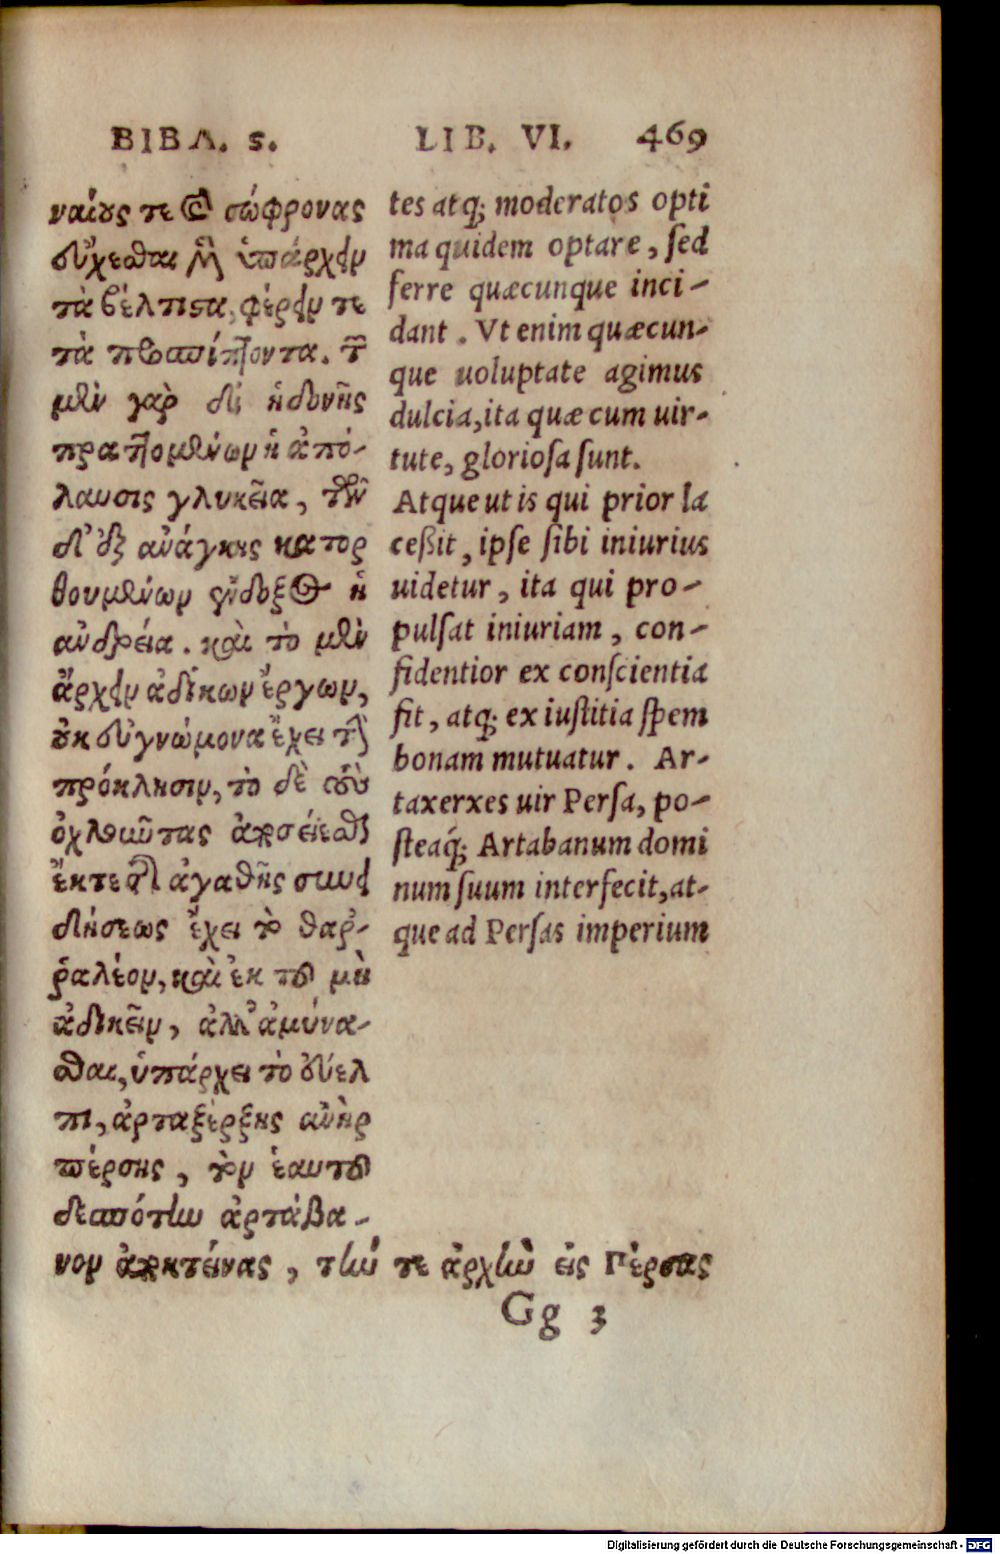 ΒΙΒΛ. ς. LIB. VI. 469
ναίους τε καὶ σώφρονας
εὔχεσθαι μὲν ὑπάρχειν
τὰ βέλτιστα, φέρειν τε
τὰ προσπίπτοντα. τῶν
μὲν γὰρ δι' ἡδονῆς
πραττομένων ἡ ἀπό-
λαυσις γλυκεῖα, τῶν
δ' ἐξ ἀνάγκης κατορ
θουμένων ἔνδοξος ἡ
ἀνδρεία. καὶ τὸ μὲν
ἄρχειν ἀδίκων ἔργων,
οὐκ εὐγνώμονα ἔχει τὴν
πρόκλησιν, τὸ δὲ τοὺς
ὀχλοῦντας ἀποσείεσθαι
ἔκ τε τῆς ἀγαθῆς συνει
δήσεως ἔχει τὸ θαρ-
ραλέον, καὶ ἐκ τοῦ μὴ
ἀδικεῖν, ἀλλ' ἀμύνα-
σθαι, ὑπάρχει τὸ εὔελ
πι, ἀρταξέρξης ἀνὴρ
πέρσης, τὸν ἑαυτοῦ
δεσπότην ἀρτάβα-
νον ἀποκτείνας, τήν τε ἀρχὴν εἰς Πέρσας
tes atq; moderatos opti
ma quidem optare, sed
ferre quæcunque inci-
dant. Vt enim quæcun-
que uoluptate agimus
dulcia, ita quæ cum uir-
tute, gloriosa sunt.
Atque ut is qui prior la
ceßit, ipse sibi iniurius
uidetur, ita qui pro-
pulsat iniuriam, con-
fidentior ex conscientia
fit, atq; ex iustitia spem
bonam mutuatur. Ar-
taxerxes uir Persa, po-
steaq́; Artabanum domi
num suum interfecit, at-
que ad Persas imperium
Gg 3
Digitalisierung gefördert durch die Deutsche Forschungsgemeinschaft - DFG